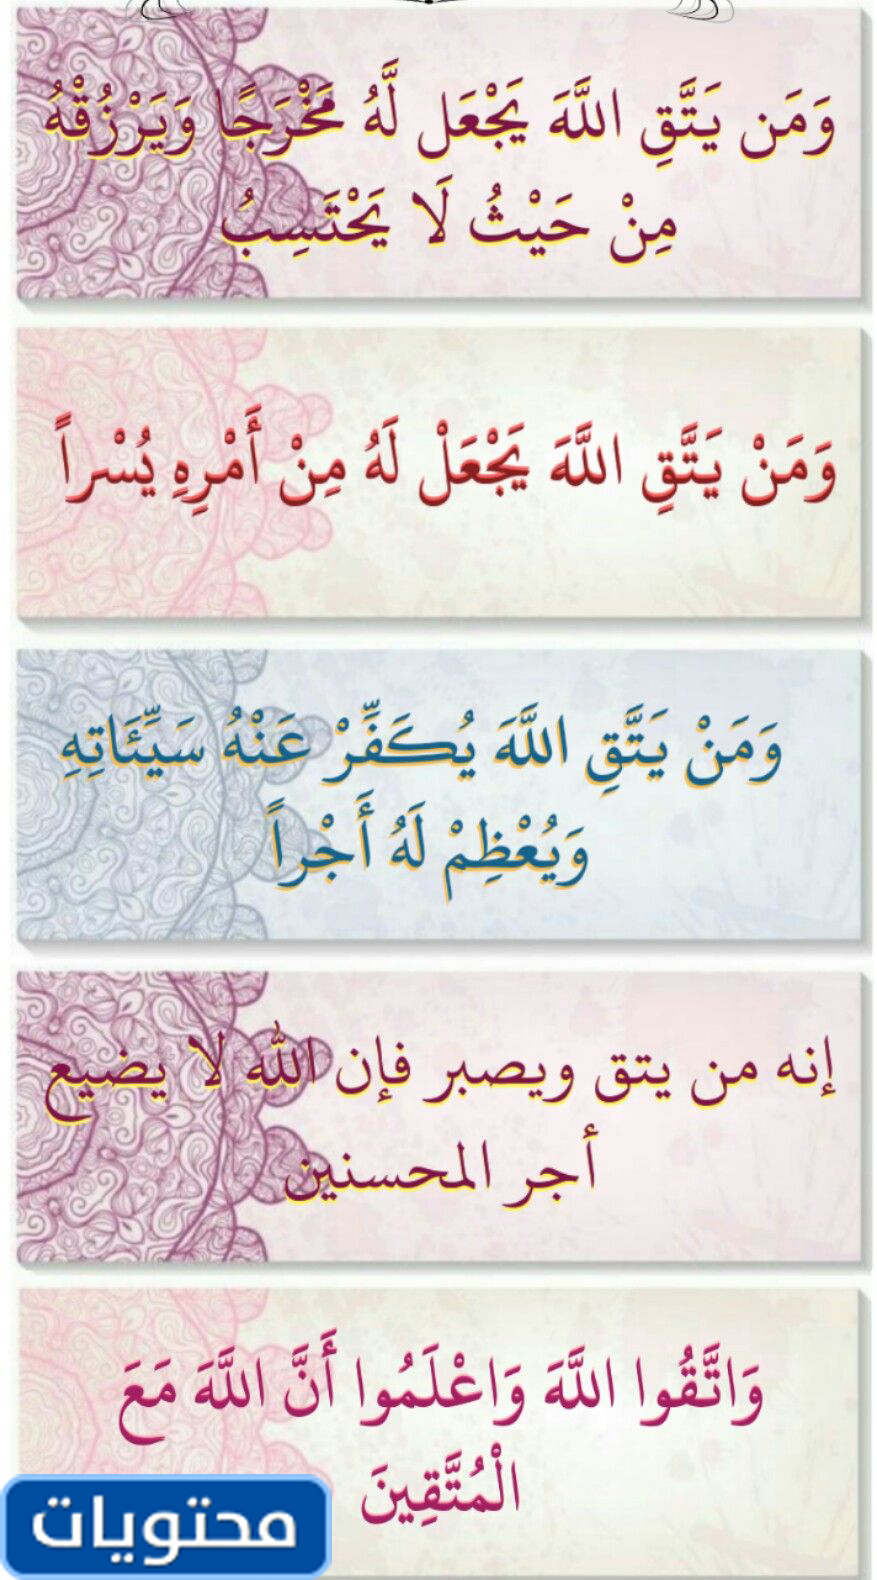 وَمَن يَتَّقِ اللَّهَ يَجْعَل لَّهُ مَخْرَجًا وَيَرْزُقْهُ
مِنْ حَيْثُ لَا يَحْتَسِبُ
وَمَنْ يَتَّقِ اللَّهَ يَجْعَلْ لَهُ مِنْ أَمْرِهِ يُسْراً
وَمَنْ يَتَّقِ اللَّهَ يُكَفِّرْ عَنْهُ سَيِّئَاتِهِ
وَيُعْظِمْ لَهُ أَجْراً
إنه من يتق ويصبر فإن الله لا يضيع
أجر المحسنين
وَاتَّقُوا اللَّهَ وَاعْلَمُوا أَنَّ اللَّهَ مَعَ
الْمُتَّقِينَ
محتويات